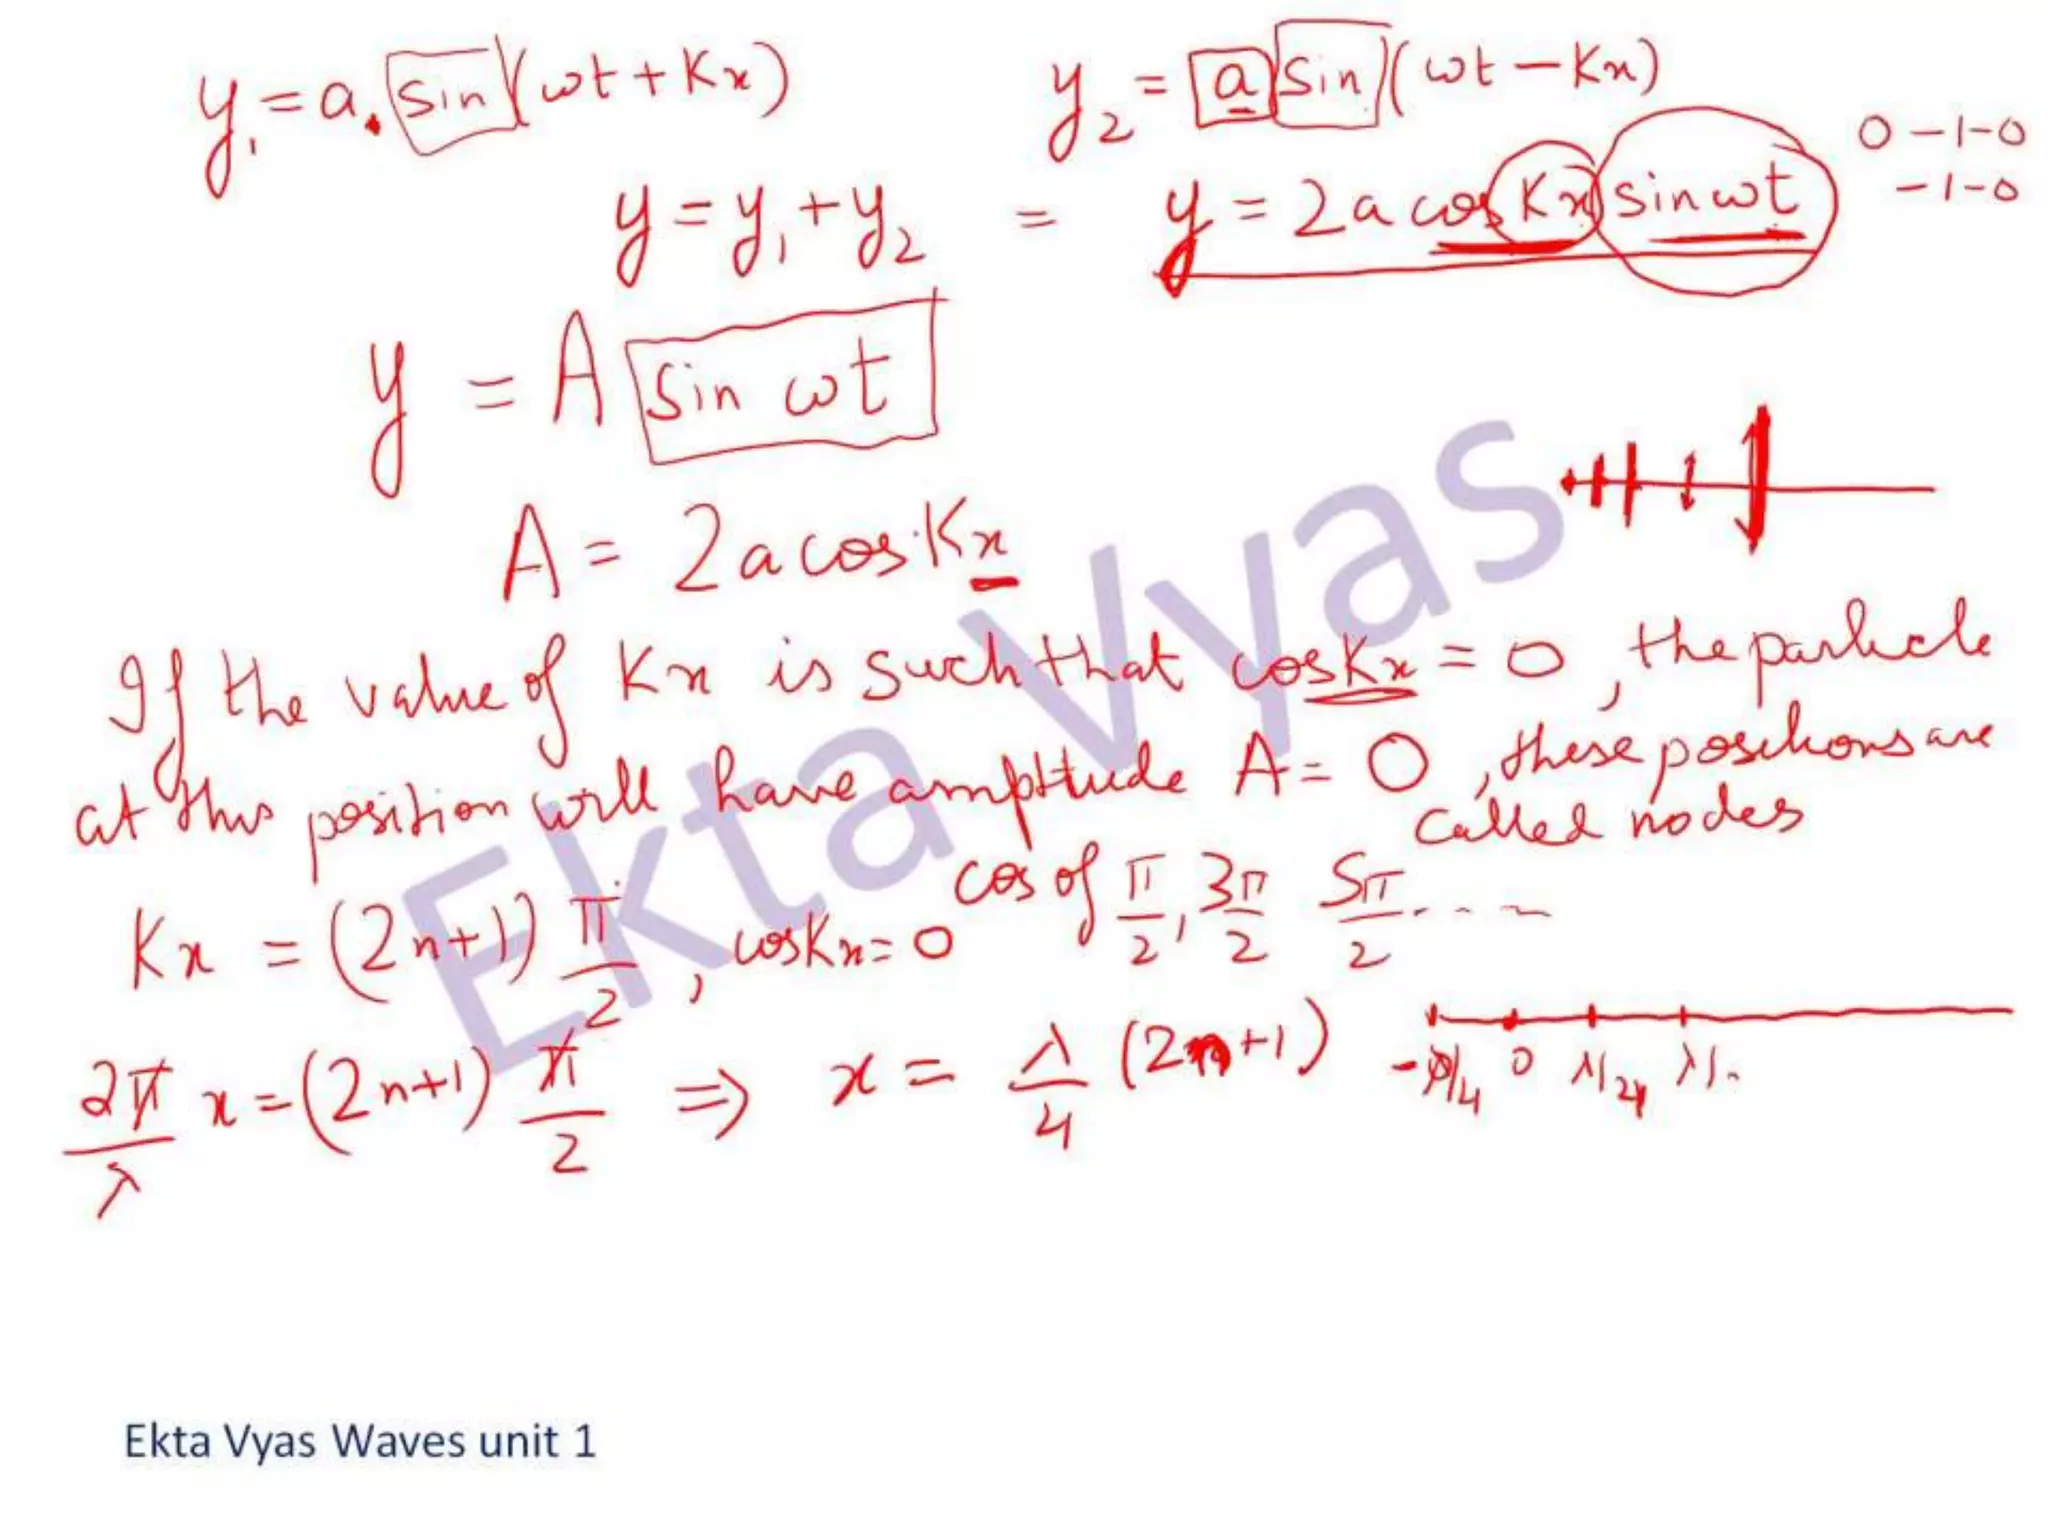 y₁ = a. sin (ωt + Kx)
y₂ = a sin (ωt − Kx)
0 − 1 − 0
− 1 − 0
y = y₁ + y₂ = y = 2a cos Kx sin ωt
y = A sin ωt
A = 2a cos Kx
If the value of Kx is such that cos Kx = 0, the particle
at this position will have amplitude A = 0, these positions are
called nodes
Kx = (2n+1) π/2, cos Kx = 0
cos of π/2, 3π/2 5π/2 ....
2π/λ x = (2n+1) π/2 ⇒ x = λ/4 (2n+1)
0
Ekta Vyas
Ekta Vyas Waves unit 1